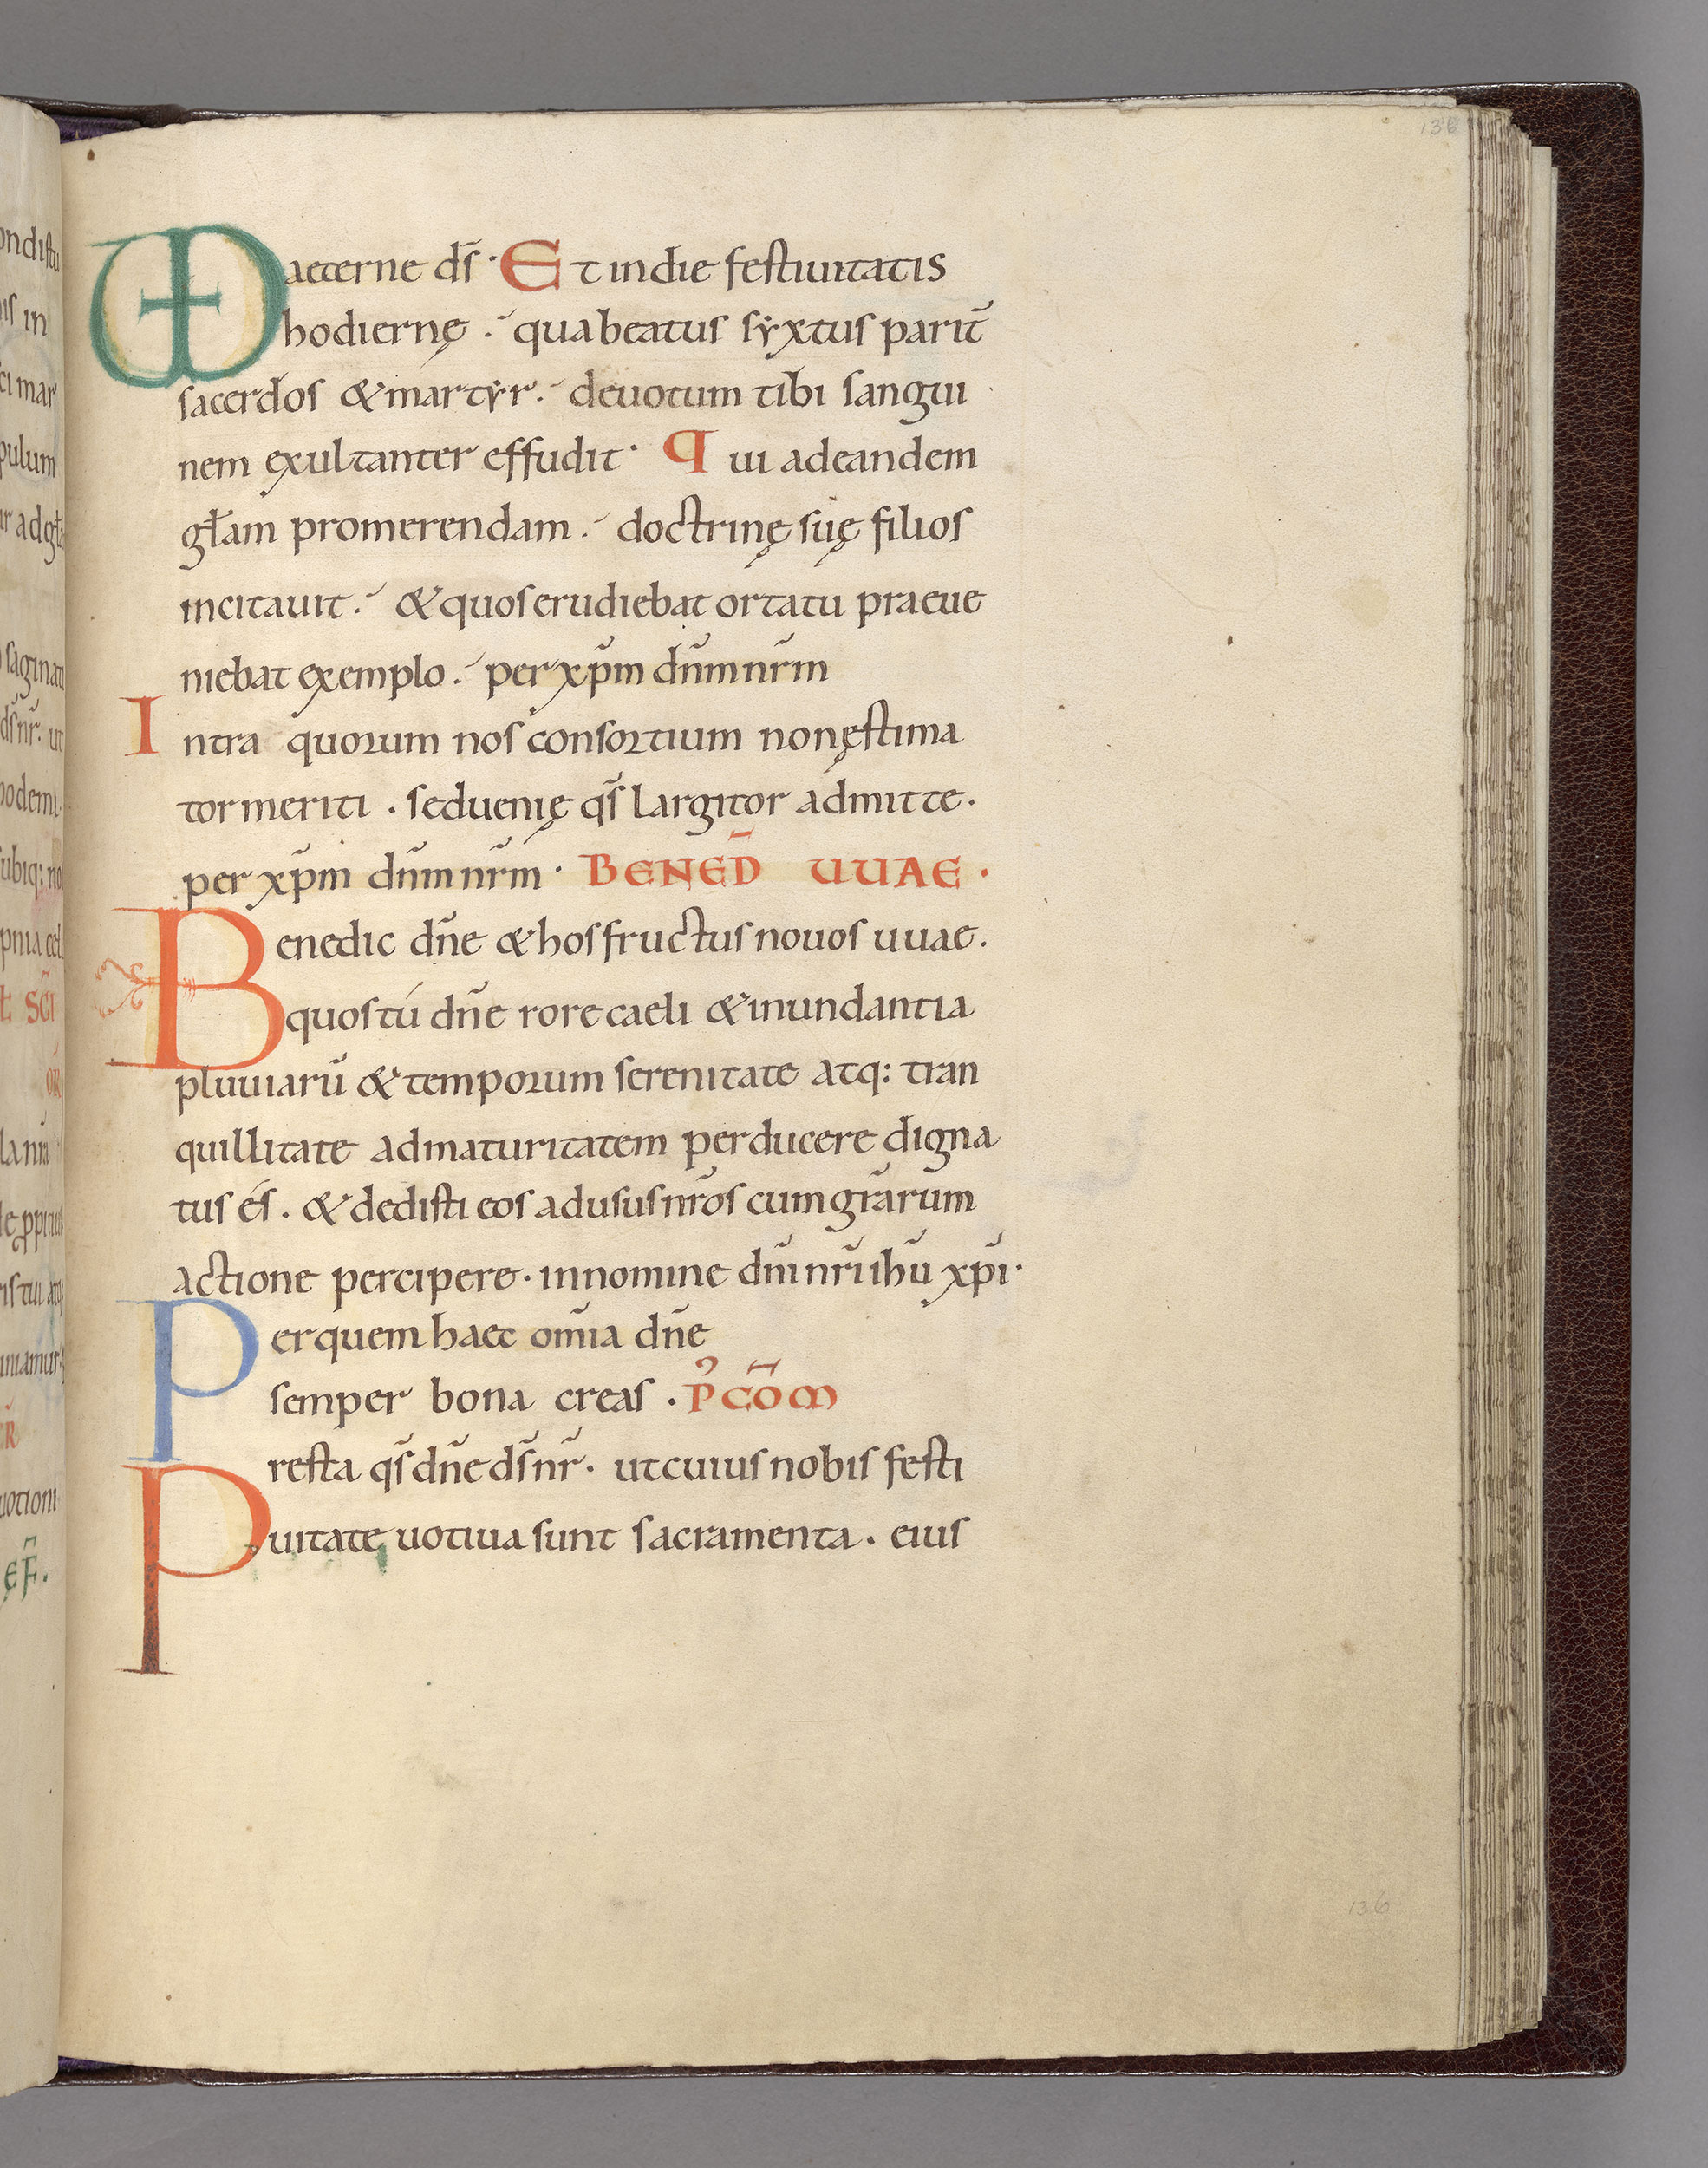 136
VD aeterne ds̄· Et in die festiuitatis
hodiernę. qua beatus sẏxtus parit̄
sacerdos & martẏr. deuotum tibi sangui
nem exultanter effudit· Qui ad eandem
gł̄am promerendam. doctrinę suę filios
incitauit. & quos erudiebat ortatu praeue
niebat exemplo. per xp̄m dn̄m nr̄m
Intra quorum nos consortium non ęstima
tor meriti. sed uenię qs̄ largitor admitte.
per xp̄m dn̄m nr̄m· BENED̄ UUAE·
Benedic dn̄e & hos fructus nouos uuae.
quos tú dn̄e rore caeli & inundantia
pluuiarū & temporum serenitate atq: tran
quillitate ad maturitatem perducere digna
tus és. & dedisti eos ad usus nr̄os cum gr̄arum
actione percipere· in nomine dn̄i nr̄i ih̄u xp̄i·
Per quem haec om̄ia dn̄e
semper bona creas. P᾽ COM̄
Presta qs̄ dn̄e ds̄ nr̄. ut cuius nobis festi
uitate uotiua sunt sacramenta. eius
136